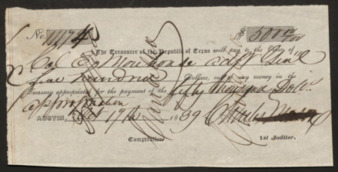 No. 1147
$ 500 00/100
The Treasurer of the Republic of Texas will pay to the Order of
Col E Morehouse
five hundred Dollars, out of any money in the
Treasury appropriated for the payment of the fifty thousand Doll
appropriation
AUSTIN, Oct 17th 1839 Charles Mason
Comptroller 1st Auditor.